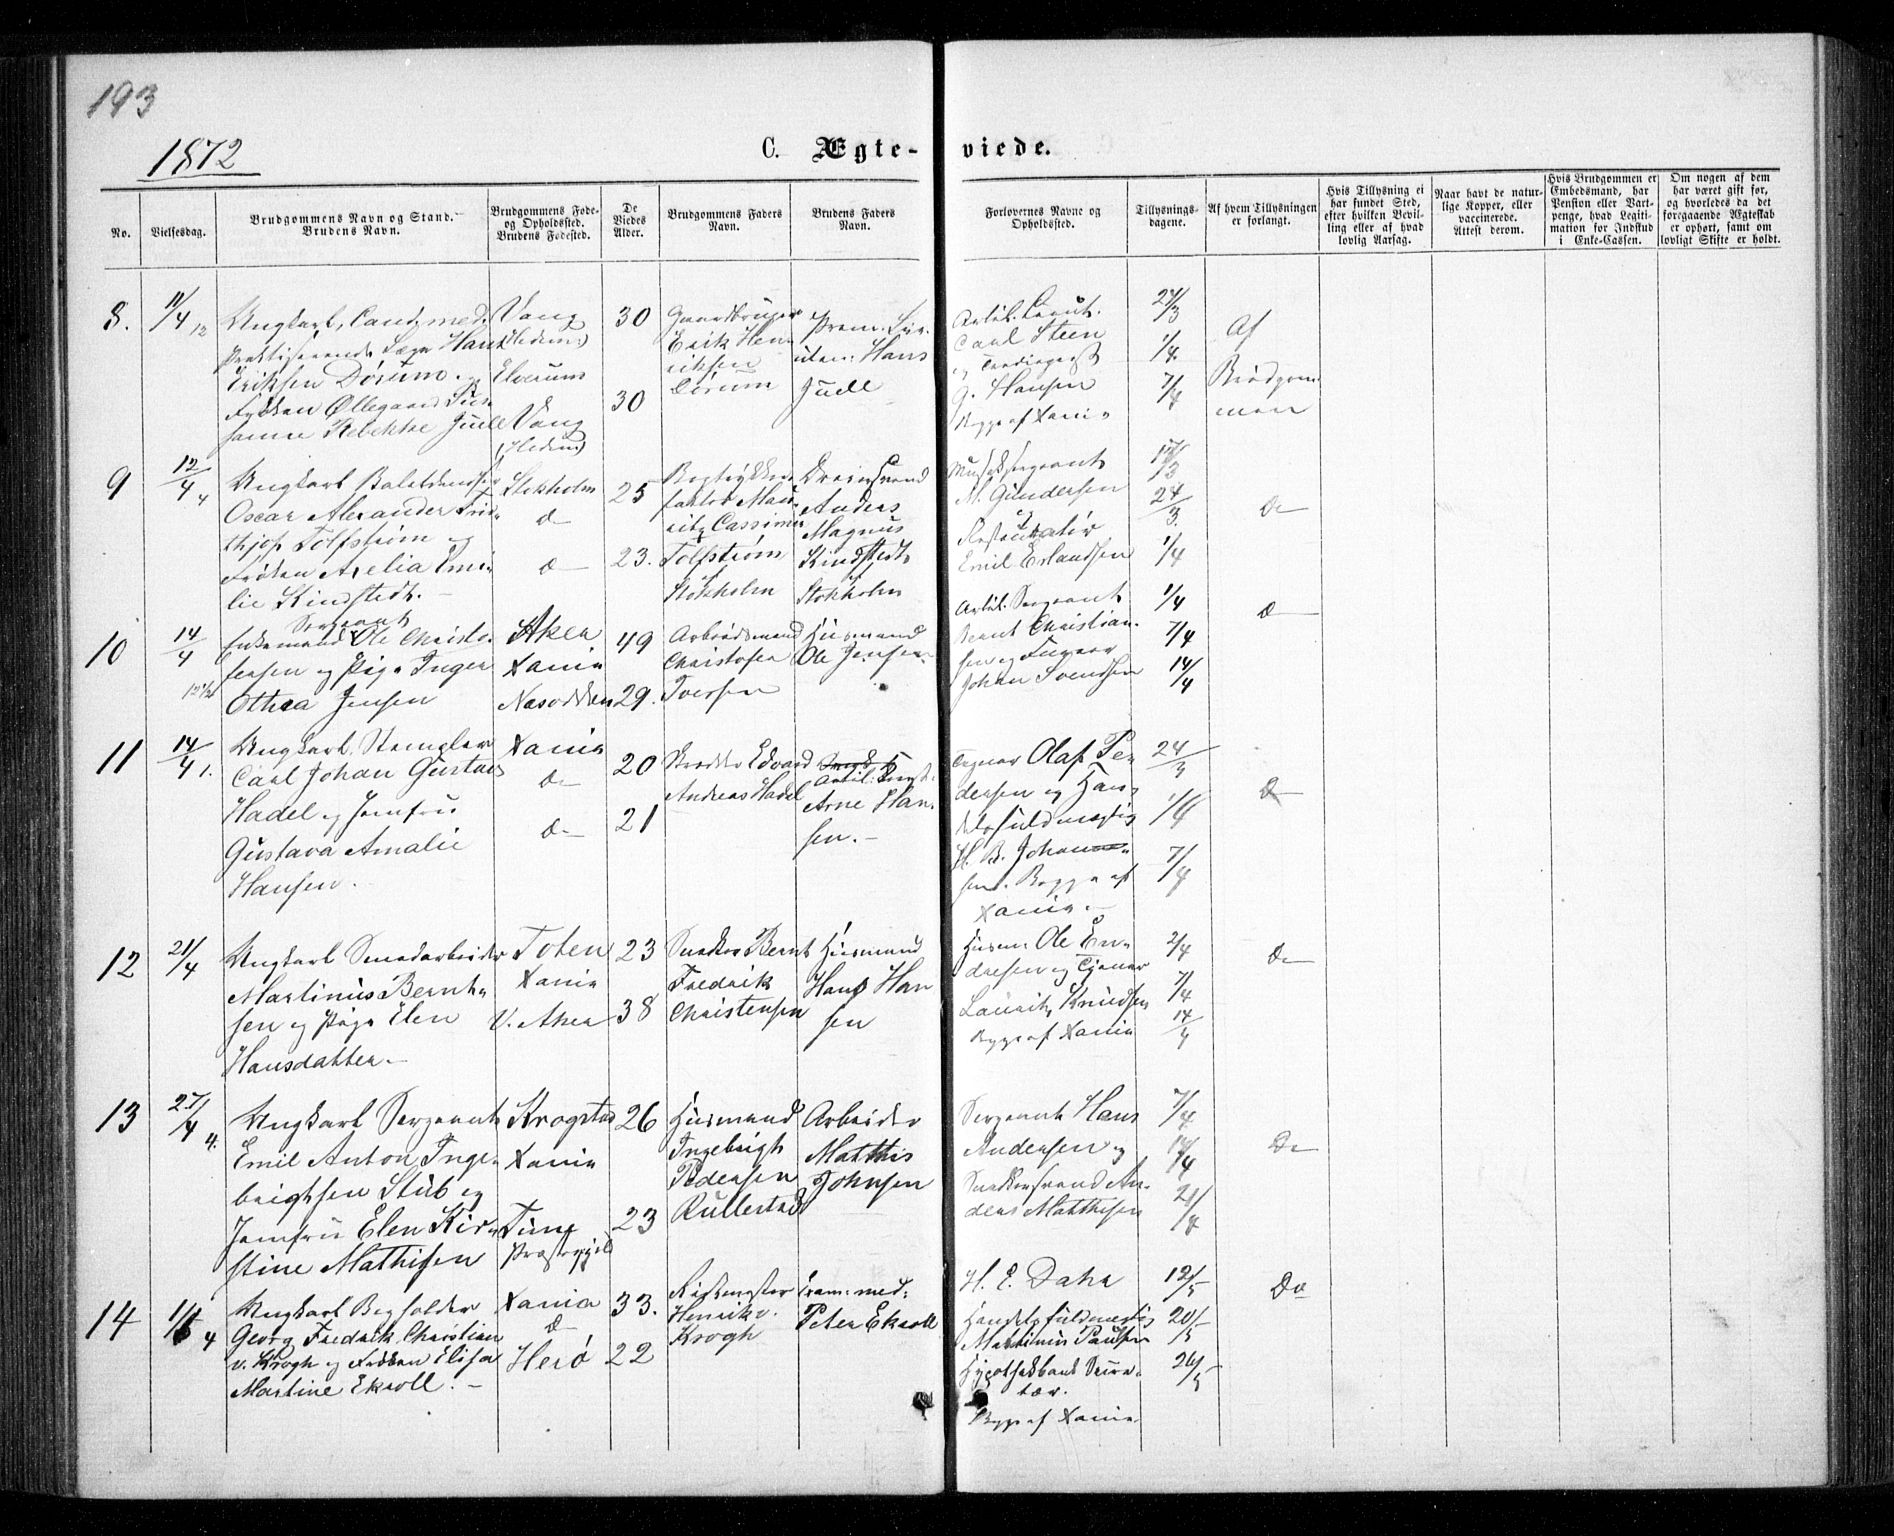 193
1872
C. Ægte-viede.
No.
Vielsesdag.
Brudgommens Navn og Stand.
Brudens Navn.
Brudgommens Føde-
og Opholdssted.
Brudens Fødested.
De
Viedes
Alder.
Brudgommens Faders
Navn.
Brudens Faders
Navn.
Forlovernes Navne og
Opholdssted.
Tillysnings-
dagene.
Af hvem Tillysningen
er forlangt.
Hvis Tillysning ei
har fundet Sted,
efter hvilken Bevil-
ling eller af hvad
lovlig Aarsag.
Naar havt de natur-
lige Kopper, eller
vaccinerede.
Attest derom.
Hvis Brudgommen er
Embedsmand, har
Pension eller Vart-
penge, hvad Legiti-
mation for Indskud
i Enke-Cassen.
Om nogen af dem
har været gift før,
og hvorledes da det
foregaaende Ægteskab
er ophørt, samt om
lovligt Skifte er holdt.
8.
11/4 12
Ungkarl, Cand. med.
praktiserende Læge Hans
Eriksen Dørum og
Frøken Øllegaard Su-
sanne Rebekke Juell
Vang
(Hedem)
Elverum
Vang
(Hedem)
30
30
Gaardbruger
Erik Hen-
riksen
Dørum
Prem. Lieu-
tn. Hans
Juell
Artil. Lieut.
Carl Steen
og
G. Hansen
Begge af Xania
24/3
1/4
7/4
Af
Brudgom-
men
9
12/4 4
Ungkarl Baletdandser
Oscar Alexander Frid-
thjof Tolfstrøm og
Frøken Axelia Emi-
lie Kindstedt.
Stokholm
do
do
25
23.
Bogtrykker-
faktor Mau-
ritz Cassimir
Tolfstrøm
Stokholm
Anders
Magnus
Kindstedt
Stokholm
Musiksergeant
M. Gundersen
og
Restauratør
Emil Erlandsen
17/3
24/3.
1/4
do
10
14/4
12 1/2
Sergeant
Enkemand Ole Christo-
fersen og Pige Inger
Othea Jensen
Aker
Xania
Næsodden
49
29.
Arbeidsmand
Christofer
Iversen
Husmand
Ole Jensen
Artil. Sergeant
Bernt Christian-
sen og
Johan Svendsen
1/4
7/4
14/4
do
11
14/4 1.
Ungkarl, Stempler
Carl Johan Gustav
Hadel og Jomfru
Gustava Amalie
Hansen.
Xania
do
do
20
21
Skrædder Edvard
Andreas Hadel
Arne Han-
sen.
Olaf Pe-
dersen og Han-
delsfuldmægtig
H. B. Johan-
sen. Begge af
Xania.
24/3
1/4
7/4
do
12
21/4
Ungkarl
Martinus Bernt-
sen og Pige Elen
Hansdatter
Toten
Xania
V. Aker
23
38
Snedker Bernt
Fredrik
Christensen
Husmand
Hans Han
sen
Husm. Ole En-
dresen og Tjener
Lauritz Knudsen
Begge af Xania
2/4
7/4
14/4
do
13
27/4 4.
Ungkarl Sergeant
Emil Anton Inge-
brigtsen Stub og
Jomfru Elen Kir-
stine Mathisen
Krogstad
Xania
Tune
Præstegjeld
26
23
Husmand
Ingebrigt
Pedersen
Rullestad
Arbeider
Matthis
Johnsen
Sergeant Hans
Andersen og
Snedkersvend An-
ders Matthisen
7/4
14/4
21/4
do
14
1/6 4
Ungkarl Bogholder
Georg Fredrik Christian
v. Krogh og Frøken Elisa
Martine Ekroll.
Xania
do
Herø
33.
22
Ritmester
Henrik v.
Krogh
Exam. med.
Peter Ekroll
H. E. Dahr
Handelsfuldmægtig
Mathinius Paulsen
Hypothekbank Sekre-
tær.
Begge af Xania
12/5
20/5
26/5
Do